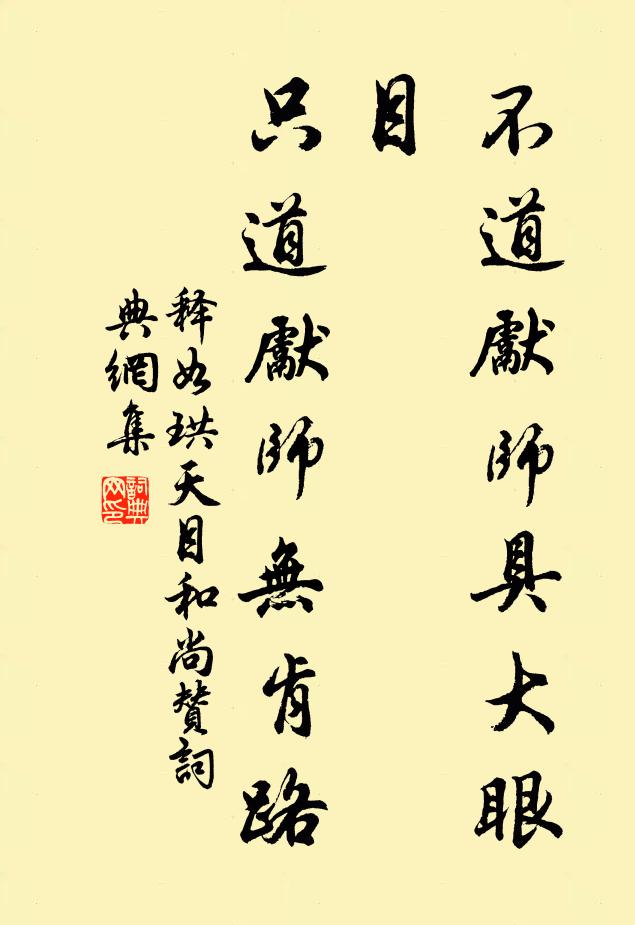 不道獻師具大眼
目
只道獻師無肯路
释如珙天目和尚贊詞
典網集
詞典网印